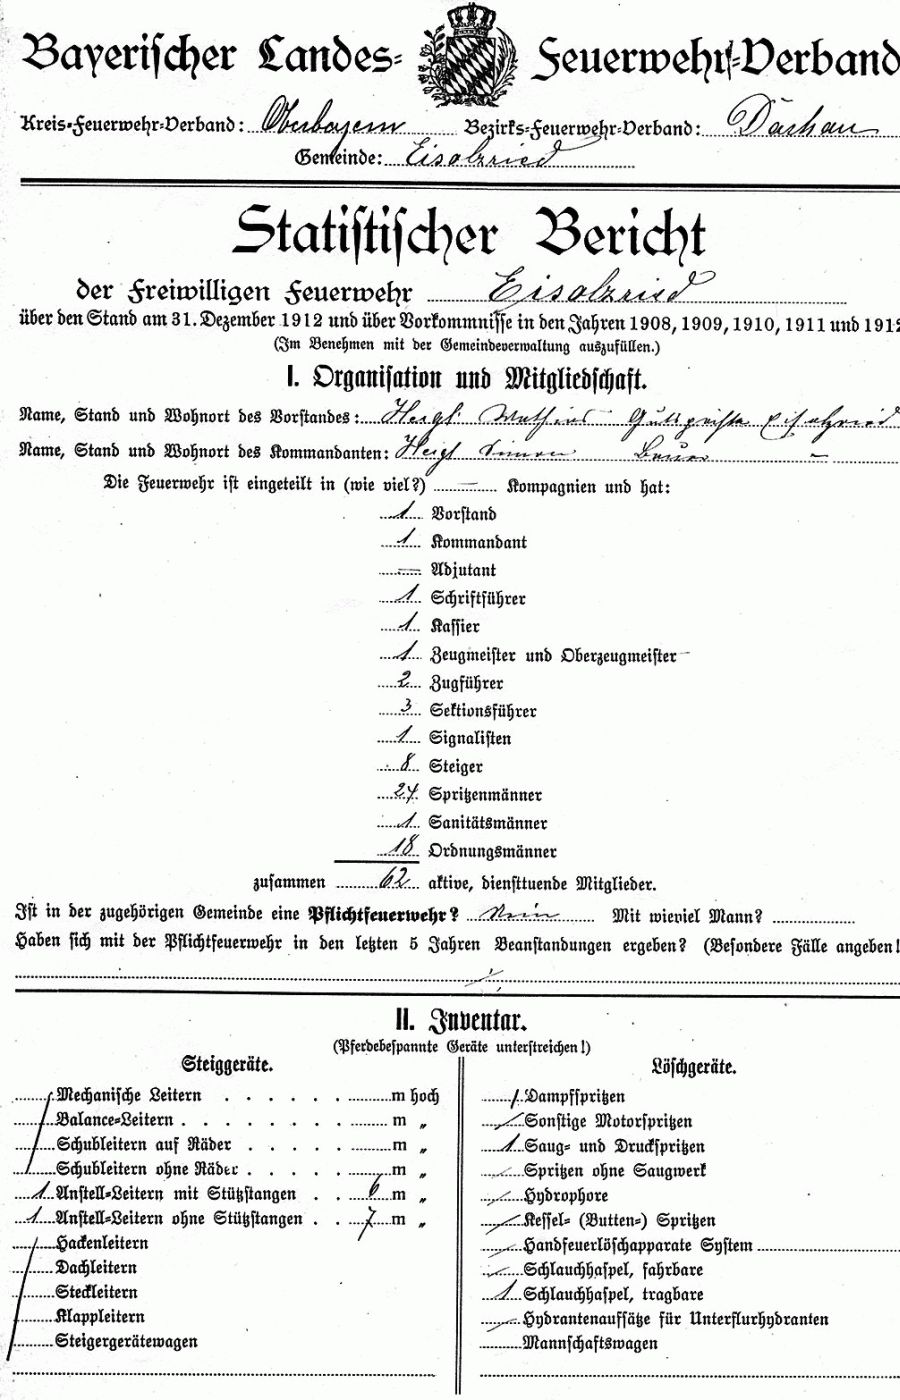 Bayerischer Landes-Feuerwehr-Verband
Kreis-Feuerwehr-Verband: Oberbayern Bezirks-Feuerwehr-Verband: Dachau
Gemeinde: Eisolzried
Statistischer Bericht
der Freiwilligen Feuerwehr Eisolzried
über den Stand am 31. Dezember 1912 und über Vorkommnisse in den Jahren 1908, 1909, 1910, 1911 und 1912
(Im Benehmen mit der Gemeindeverwaltung auszufüllen.)
I. Organisation und Mitgliedschaft.
Name, Stand und Wohnort des Vorstandes: Heigl Mathias Eisolzried
Name, Stand und Wohnort des Kommandanten: Heigl Simon Bauer –
Die Feuerwehr ist eingeteilt in (wie viel?) — Kompagnien und hat:
1 Vorstand
1 Kommandant
— Adjutant
1 Schriftführer
1 Kassier
1 Zeugmeister und Oberzeugmeister
2 Zugführer
3 Sektionsführer
1 Signalisten
8 Steiger
24 Spritzenmänner
1 Sanitätsmänner
18 Ordnungsmänner
zusammen 62 aktive, diensttuende Mitglieder.
Ist in der zugehörigen Gemeinde eine Pflichtfeuerwehr? Nein Mit wieviel Mann?
Haben sich mit der Pflichtfeuerwehr in den letzten 5 Jahren Beanstandungen ergeben? (Besondere Fälle angeben!
II. Inventar.
(Pferdebespannte Geräte unterstreichen!)
Steiggeräte.
Mechanische Leitern m hoch
Balance-Leitern m „
Schubleitern auf Räder m „
Schubleitern ohne Räder m „
1 Anstell-Leitern mit Stützstangen 6 m „
1 Anstell-Leitern ohne Stützstangen 7 m „
Hackenleitern
Dachleitern
Steckleitern
Klappleitern
Steigergerätewagen
Löschgeräte.
Dampfspritzen
Sonstige Motorspritzen
1 Saug- und Druckspritzen
Spritzen ohne Saugwerk
Hydrophore
Kessel- (Butten-) Spritzen
Handfeuerlöschapparate System
Schlauchhaspel, fahrbare
1 Schlauchhaspel, tragbare
Hydrantenaufsätze für Unterflurhydranten
Mannschaftswagen